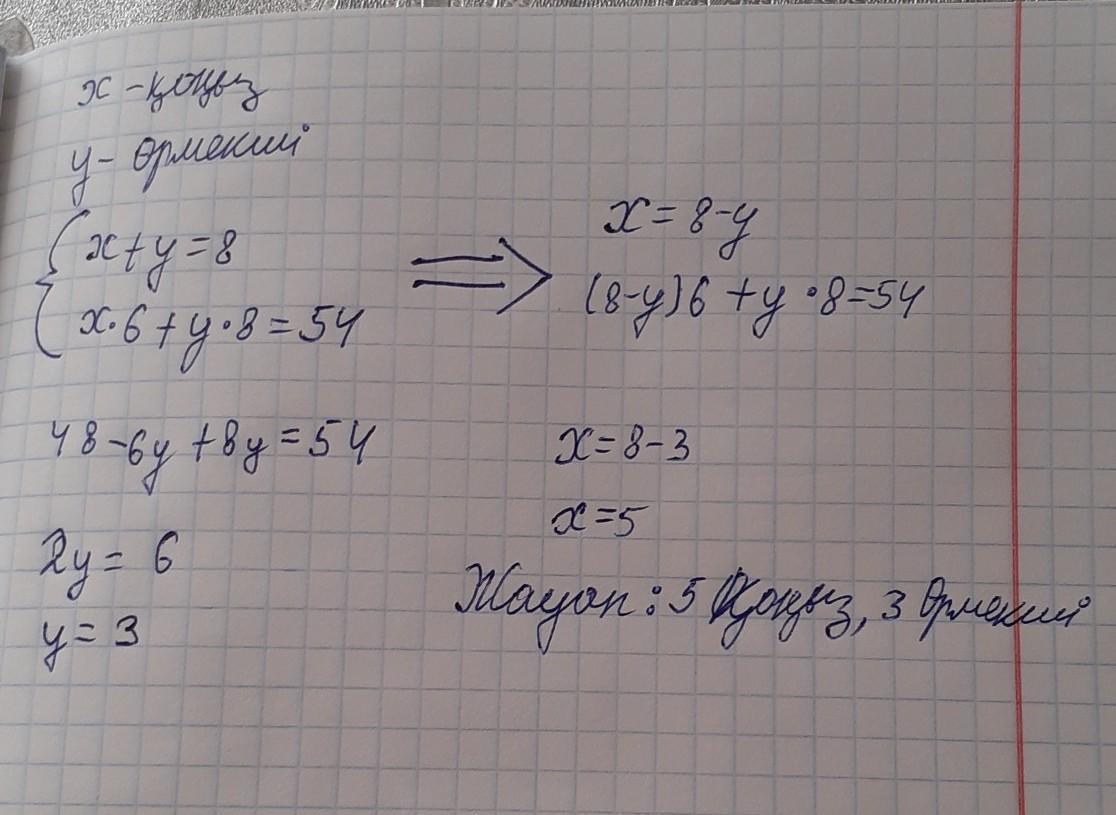 x - қоңыз
y - Өрмекший
x+y=8
x·6+y·8=54
x=8-y
(8-y)6+y·8=54
48-6y+8y=54
2y=6
y=3
x=8-3
x=5
Жауап: 5 Қоңыз, 3 Өрмекший